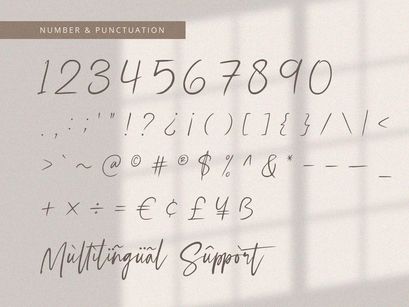 NUMBER & PUNCTUATION
1234567890
. , : ; ' " ! ? ¿ ¡ ( ) [ ] { } / \ | <
> ` ~ @ © # ® $ % ^ & * - – — _
+ × ÷ = € ¢ £ ¥ ß
Mùltîlíñgüãl Sûppòrt